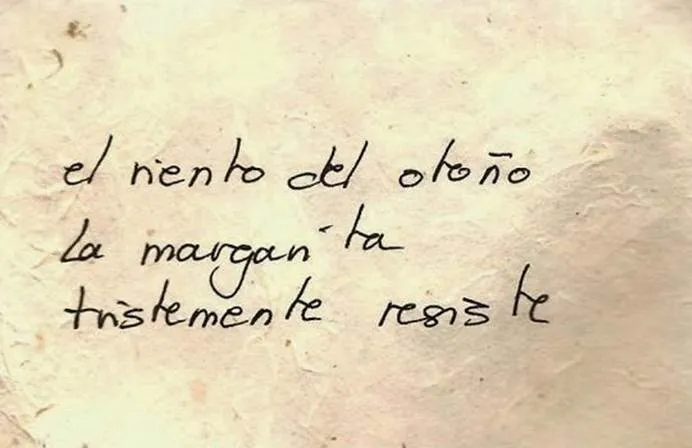 el viento del otoño
La margarita
tristemente resiste